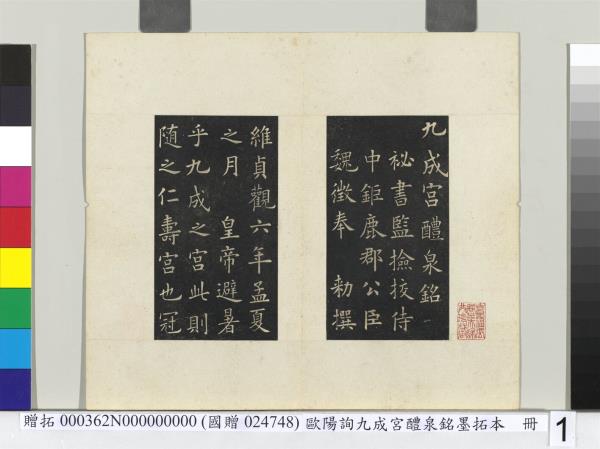 九成宮醴泉銘
祕書監撿挍侍
中鉅鹿郡公臣
魏徵奉 勑撰
維貞觀六年孟夏
之月 皇帝避暑
乎九成之宮此則
随之仁壽宮也冠
贈拓 000362N000000000 (國贈 024748) 歐陽詢九成宮醴泉銘墨拓本 冊 1